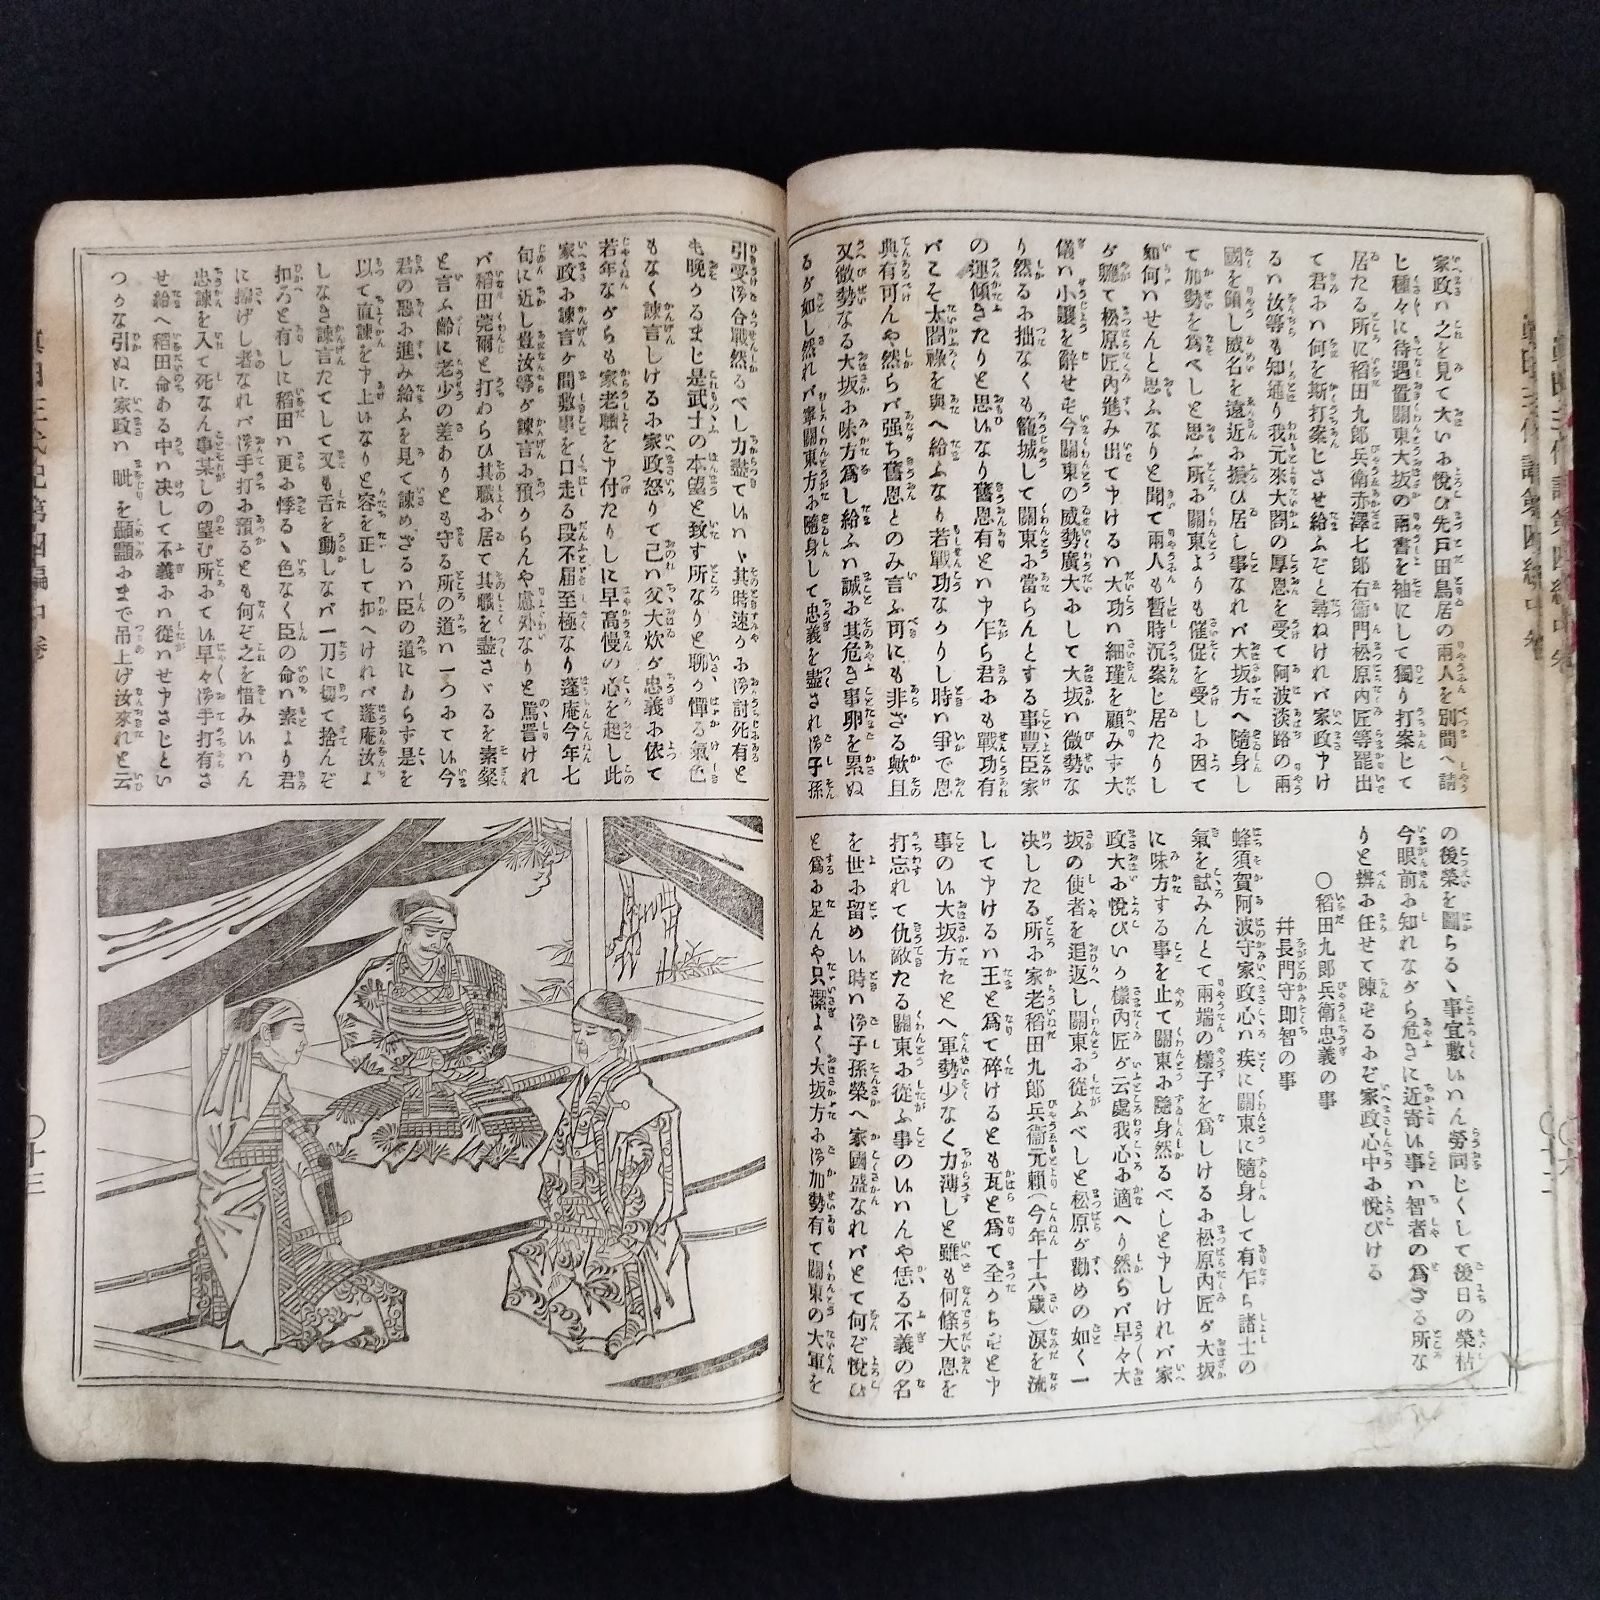 家政ハ之を見て大いお悅び先戸田鳥居の兩人を別間へ請
じ種々に待遇置關東大坂の兩書を袖にして獨り打案じて
居たる所に稻田九郎兵衛赤澤七郎右衞門松原內匠等罷出
て君おハ何を斯打案じさせ給ふぞと尋ねけれバ家政申け
るハ汝等も知通り我元來大閤の厚恩を受て阿波淡路の兩
國を領し威名を遠近お振ひ居し事なれバ大坂方へ隨身し
て加勢を爲べしと思ふ所お關東よりも催促を受しお因て
如何ハせんと思ふなりと聞て兩人も暫時沉案じ居たりし
が軈て松原匠內進み出て申けるハ大功ハ細瑾を顧みず大
儀ハ小讓を辭せず今關東の威勢廣大おして大坂ハ微勢な
り然るお拙なくも籠城して關東お當らんとする事豊臣家
の運傾きたりと思いなり舊恩有とい申乍ら君おも戰功有
バこそ太閤祿を與へ給ふなり若戰功なかりし時ハ爭で恩
典有可んや然らバ强ち舊恩とのみ言ふ可にも非ざる歟且
又微勢なる大坂お味方爲し給ふハ誠お其危き事卵を累ぬ
るが如し然れバ寧關東方お隨身して忠義を盡され御子孫
の後榮を圖らるゝ事宜敷いハん勞同じくして後日の榮枯
今眼前お知れながら危きに近寄い事ハ智者の爲ざる所な
りと辨お任せて陳ずるおぞ家政心中お悅びける
〇稻田九郎兵衛忠義の事
幷長門守即智の事
蜂須賀阿波守家政心ハ疾に關東に隨身して有乍ら諸士の
氣を試みんとて兩端の樣子を爲しけるお松原內匠が大坂
に味方する事を止て關東お隨身然るべしと申しけれバ家
政大お悅びいか樣內匠が云處我心お適へり然らバ早々大
坂の使者を追返し關東お從ふべしと松原が勸めの如く一
決したる所お家老稻田九郎兵衞元賴(今年十六歲)淚を流
して申けるハ王と爲て碎けるとも瓦と爲て全からずと申
事のい大坂方たとへ軍勢少なく力薄しと雖も何條大恩を
打忘れて仇敵たる關東お從ふ事のいハんや恁る不義の名
を世お留めい時ハ御子孫榮へ家國盛なれバとて何ぞ悅び
と爲お足んや只潔よく大坂方お御加勢有て關東の大軍を
引受御合戰然るべし力盡ていハヾ其時速かお御討死有と
も晚かるまじ是武士の本望と致す所なりと聊か憚る氣色
もなく諫言しけるお家政怒りて己ハ父大炊が忠義お依て
若年ながらも家老職を申付たりしに早高慢の心を起し此
家政お諫言ケ間敷事を口走る段不屆至極なり蓬庵今年七
旬に近し豈汝等が諫言お預からんや慮外なりと罵詈けれ
バ稻田莞爾と打わらひ其職お居て其職を盡さゞるを素粲
と言ふ齡に老少の差わりとも守る所の道ハ一つおてい今
君の惡お進み給ふを見て諫めざるハ臣の道にもらず是を
以て直諫を申上いなりと容を正して扣へけれバ蓬庵汝よ
しなき諫言だてして又も舌を動しなバ一刀に切て捨んぞ
扣ろと有しに稻田ハ更お悸るゝ色なく臣の命ハ素より君
に捐げし者なれバ御手打お預るとも何ぞ之を惜みいハん
忠諫を入て死なん事某しの望む所おてい早々御手打有さ
せ給へ稻田命ある中ハ決して不義おハ從いせ申さじとい
つかな引ぬに家政ハ眦を顳顬おまで吊上げ汝來れと云
眞田三代記第四編中卷
〇十三